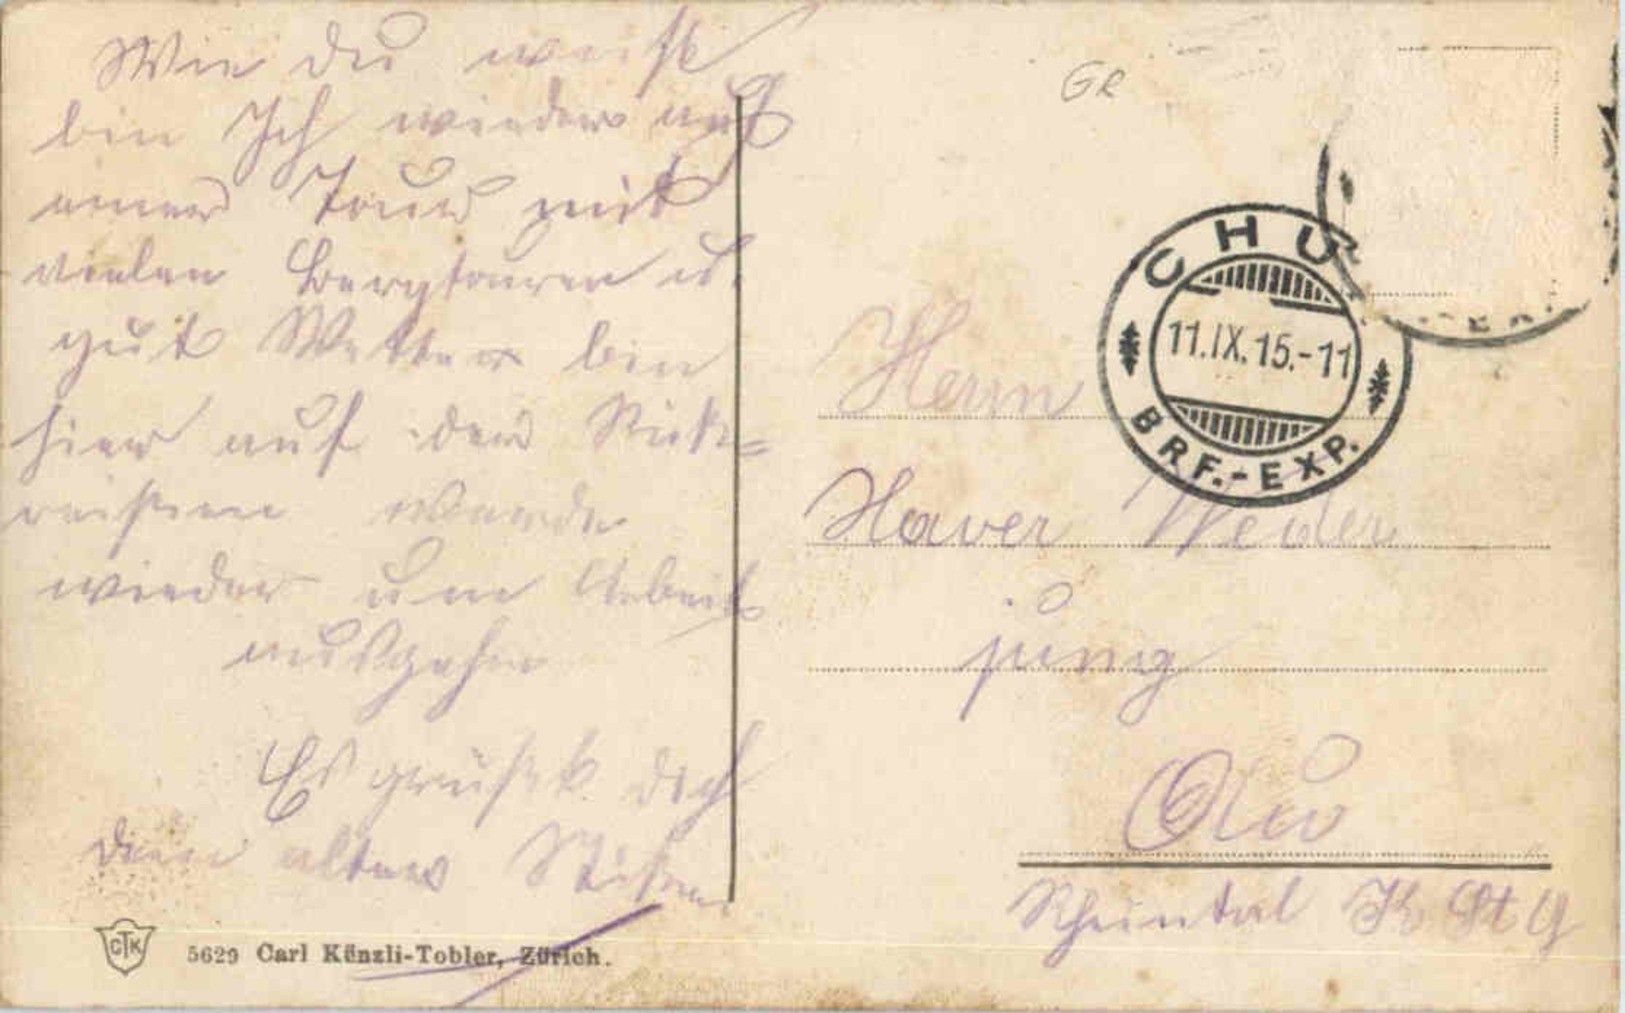 Wie du weist
bin Ich wieder auf
einer Tour mit
vielen Bergtouren u.
gut Wetter bin
hier auf der Rück=
reise werde
wieder um Arbeit
ausgehen
Es grüsst dich
dein alter
CTK
5629 Carl Künzli-Tobler, Zürich.
GR
CHUR
11.IX.15.-11
BRF.-EXP.
Herrn
Xaver Weder
jung
Au
Rheintal Kt. St G